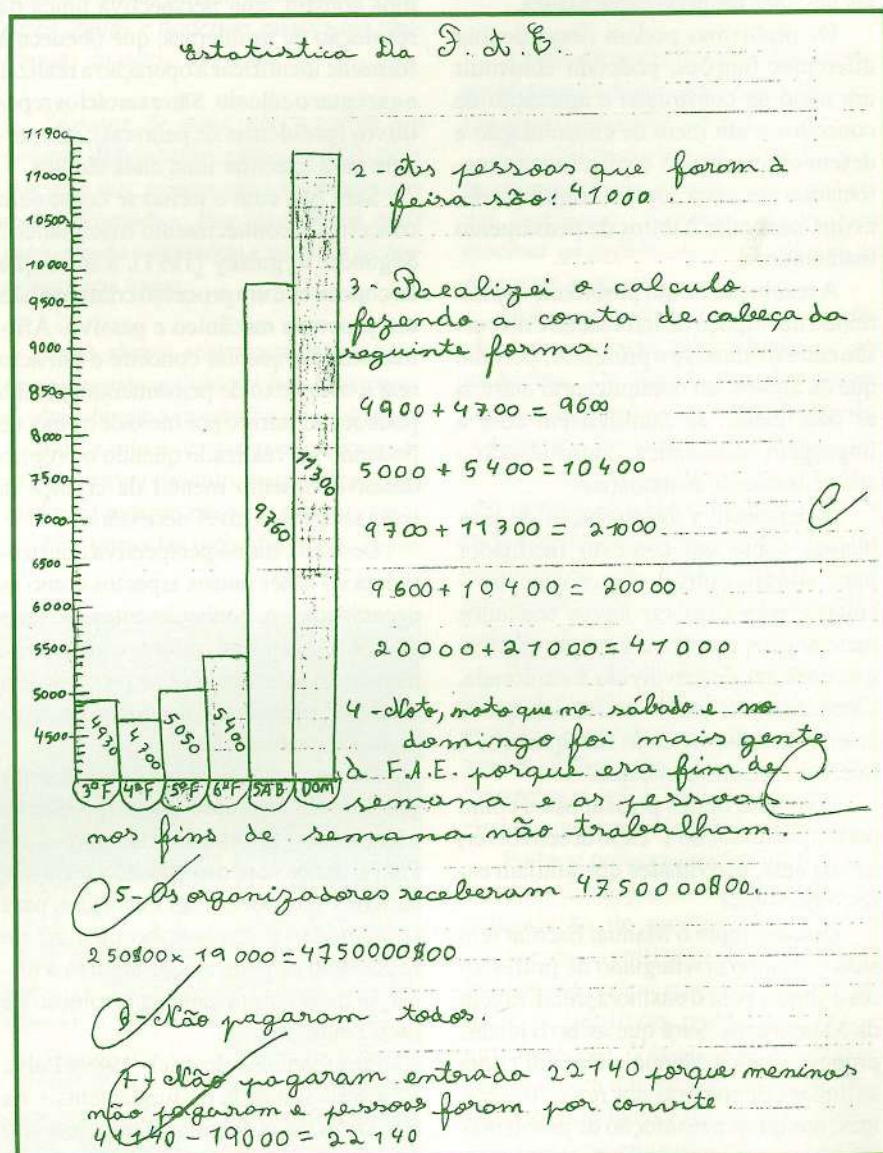 Estatística Da F. A. E.
11900
11000
10500
10000
9500
9000
8500
8000
7500
7000
6500
6000
5500
5000
4500
4930
4700
5050
5400
9760
11300
3ª F 4ª F 5ª F 6ª F SAB. DOM
2 - As pessoas que forom à
feira são: 41000
3 - Realizei o calculo
fezendo a conta de cabeça da
seguinte forma:
4900 + 4700 = 9600
5000 + 5400 = 10400
9700 + 11300 = 21000
9600 + 10400 = 20000
20000 + 21000 = 41000
4 - Noto, noto que no sábado e no
domingo foi mais gente
à F.A.E. porque era fim de
semana e as pessoas
nos fins de semana não trabalham.
5 - Os organizadores receberam 4750000$00.
250$00 x 19000 = 4750000$00
6 - Não pagaram todos.
7 - Não pagaram entrada 22140 porque meninos
não pagaram e pessoas foram por convite
41140 - 19000 = 22140